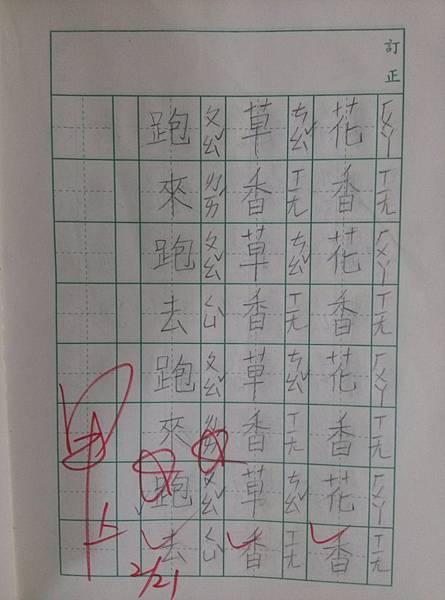 訂正
ㄏㄨㄚ ㄒㄧㄤ ㄏㄨㄚ ㄒㄧㄤ ㄏㄨㄚ ㄒㄧㄤ ㄏㄨㄚ ㄒㄧㄤ
花香花香花香花香
ㄘㄠˇ ㄒㄧㄤ ㄘㄠˇ ㄒㄧㄤ ㄘㄠˇ ㄒㄧㄤ ㄘㄠˇ ㄒㄧㄤ
草香草香草香草香
ㄆㄠˇ ㄌㄞˊ ㄆㄠˇ ㄑㄩˋ ㄆㄠˇ ㄌㄞˊ ㄆㄠˇ ㄑㄩˋ
跑來跑去跑來跑去
甲上
2/21